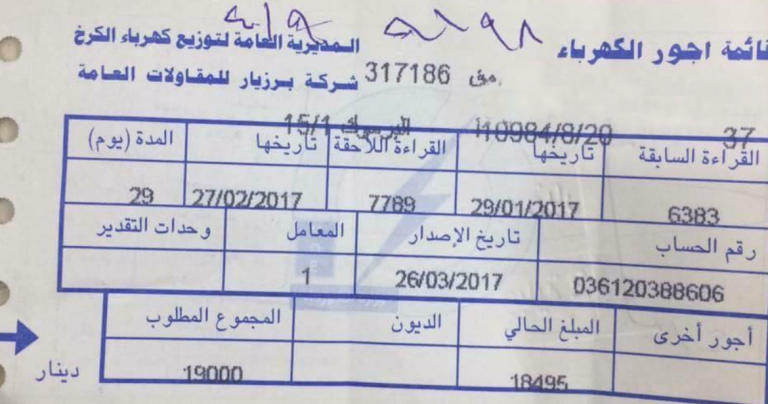 قائمة اجور الكهرباء
المديرية العامة لتوزيع كهرباء الكرخ
شركة برزيار للمقاولات العامة 317186
37 10984/8/20 اليرموك 15/1
القراءة السابقة تاريخها القراءة اللاحقة تاريخها المدة (يوم)
6383 29/01/2017 7789 27/02/2017 29
رقم الحساب تاريخ الإصدار المعامل وحدات التقدير
036120388606 26/03/2017 1
أجور أخرى المبلغ الحالي الديون المجموع المطلوب
18495 19000 دينار